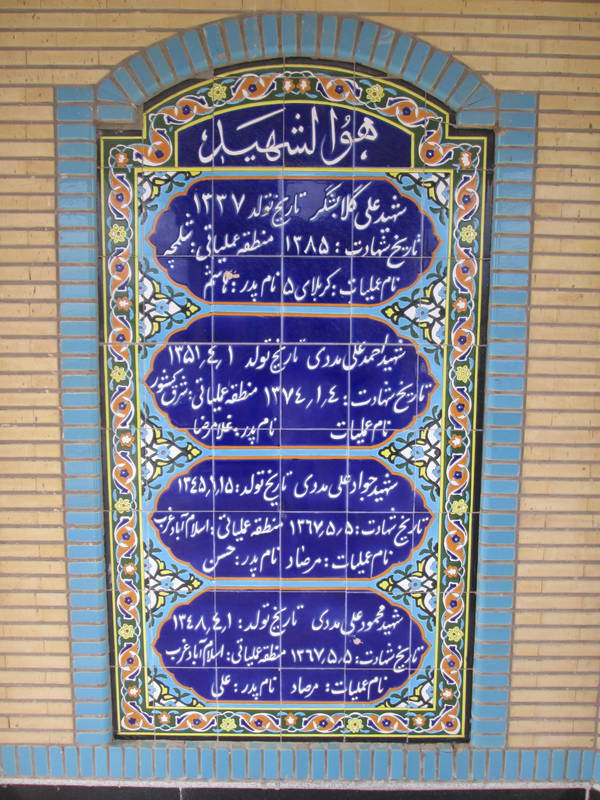 هوالشهید
شهید علی گلابشگر تاریخ تولد ۱۳۳۷
تاریخ شهادت : ۱۲۸۵ منطقه عملیاتی : شلمچه
نام عملیات : کربلای ۵ نام پدر : هاشم
شهید احمد علی مددی تاریخ تولد ۱٫۴٫۱۳۵۱
تاریخ شهادت : ۴٫۱٫۱۳۷۴ منطقه عملیاتی : شرق کشور
نام عملیات نام پدر : غلامرضا
شهید جواد علی مددی تاریخ تولد : ۱۳۴۵٫۱٫۱۵
تاریخ شهادت : ۱۳۶۷٫۵٫۵ منطقه عملیاتی : اسلام آباد غرب
نام عملیات : مرصاد نام پدر : حسن
شهید محمود علی مددی تاریخ تولد : ۱۳۴۸٫۴٫۱
تاریخ شهادت : ۱۳۶۷٫۵٫۵ منطقه عملیاتی : اسلام آباد غرب
نام عملیات : مرصاد نام پدر : علی